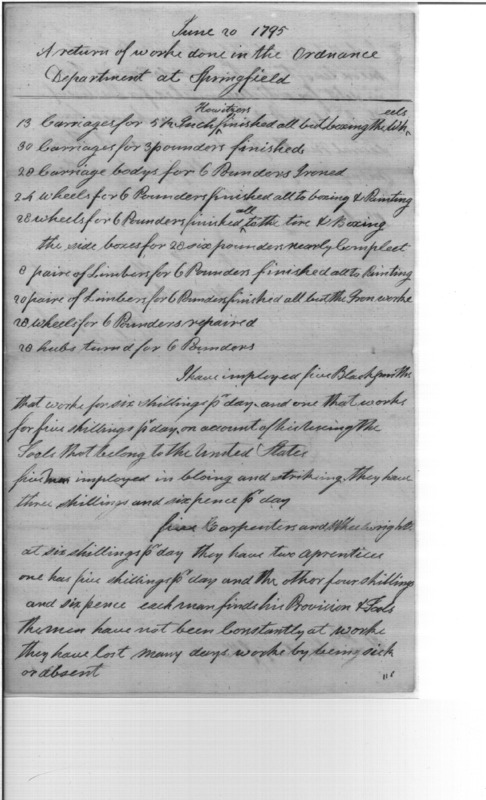 June 20 1795
A return of worke done in the Ordnance
Department at Springfield
Howitzers eels
13 Carriages for 5½ Inch finished all but boxing the Wh
30 Carriages for 3 pounders finished
20 Carriage bodys for 6 Pounders Ironed
24 wheels for 6 Pounders finished all to boxing & Painting
all
28 wheels for 6 Pounders finished to the tire & Boxing
the side boxes for 28 six pounders nearly Compleet
8 paire of Limbers for 6 Pounders finished all to Painting
20 paire of Limbers for 6 Pounders finished all but the Iron worke
28 wheels for 6 Pounders repaired
28 hubs turnd for 6 Pounders
I have imployed five Black Smiths
that worke for six shillings pr day and one that works
for five shillings pr day, on account of his useing the
Tools that belong to the United States
five men imployed in bloing and strikeing they have
three shillings and six pence pr day
five Carpenters and Wheelwrights
at six shillings pr day they have two aprentices
one has five shillings pr day and the other four shillings
and six pence each man finds his Provision & Tools
The men have not been Constantly at worke
they have lost many days worke by being sick
or absent